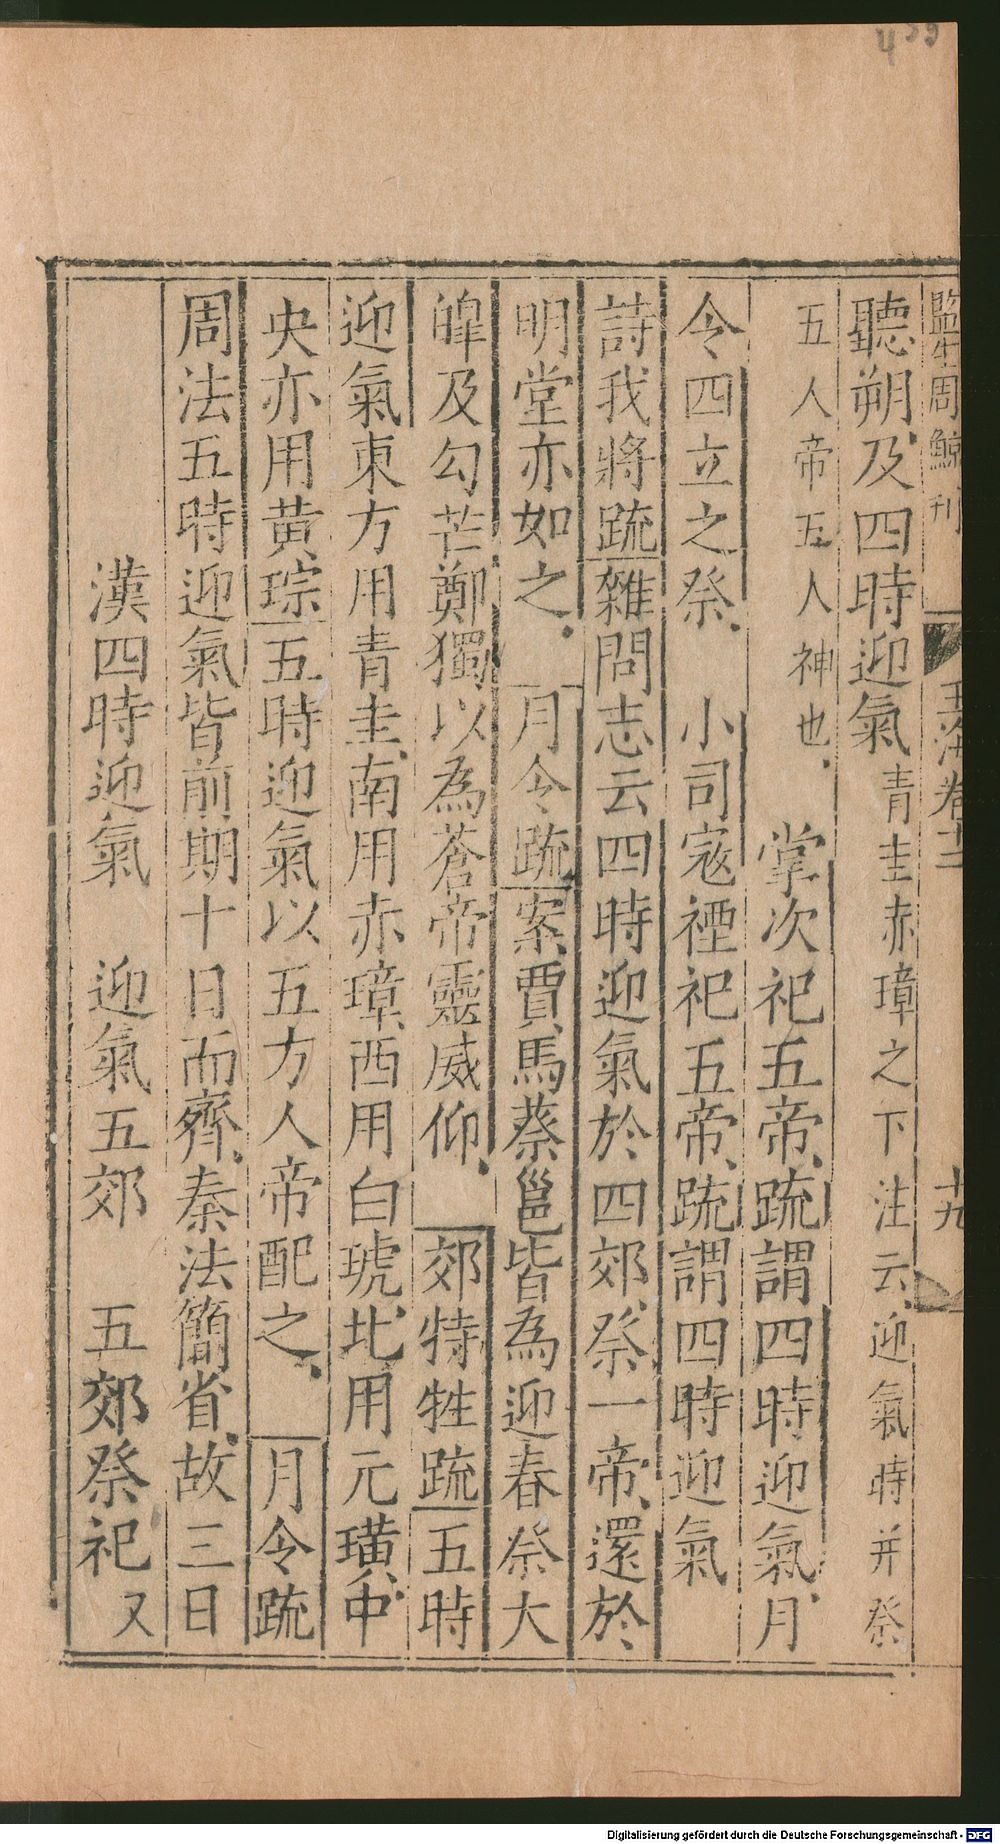 439
監生周鯨刊
玉海卷十二
十九
聽朔及四時迎氣青圭赤璋之下注云迎氣時并祭
五人帝五人神也　掌次祀五帝疏謂四時迎氣月
令四立之祭　小司寇禋祀五帝疏謂四時迎氣
詩我將疏雜問志云四時迎氣於四郊祭一帝還於
明堂亦如之　月令疏案賈馬蔡邕皆為迎春祭大
皥及勾芒鄭獨以為蒼帝靈威仰　郊特牲疏五時
迎氣東方用青圭南用赤璋西用白琥北用元璜中
央亦用黃琮五時迎氣以五方人帝配之　月令疏
周法五時迎氣皆前期十日而齊秦法簡省故三日
漢四時迎氣　迎氣五郊　五郊祭祀又
Digitalisierung gefördert durch die Deutsche Forschungsgemeinschaft - DFG